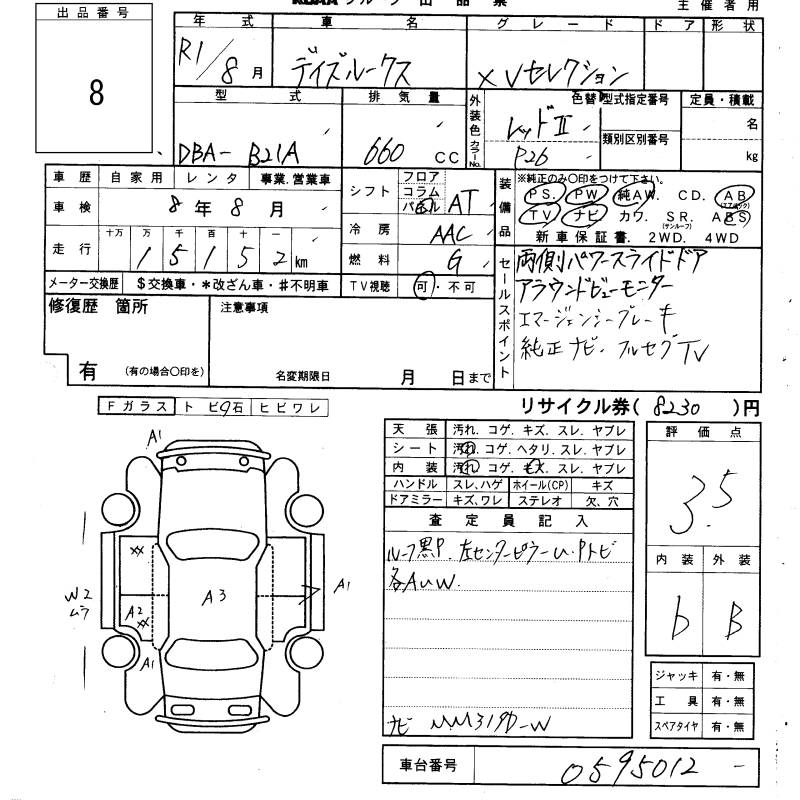 KCAA グループ 出 品 票
主催者用
出品番号
8
年式 車名 グレード ドア 形状
R1/8月 デイズルークス XVセレクション
型式 排気量 外装色 カラーNo. 色替 型式指定番号 定員・積載
DBA- B21A 660 CC レッドII P26 類別区別番号 名 kg
車歴 自家用 レンタ 事業.営業車
車検 8年8月
走行 十万 万 千 百 十 一
15152km
メーター交換歴 $交換車・*改ざん車・#不明車
シフト フロア コラム パネル AT
冷房 AAC
燃料 G
TV視聴 可・不可
装備品 ※純正のみ〇印をつけて下さい。
PS. PW 純AW. CD. AB(エアバック)
TV ナビ カワ. SR.(サンルーフ) ABS
新車保証書. 2WD. 4WD
セールスポイント
両側パワースライドドア
アラウンドビューモニター
エマージェンシーブレーキ
純正ナビ・フルセグTV
修復歴 箇所
有 (有の場合〇印を)
注意事項
名変期限日 月 日まで
Fガラス トビ石 ヒビワレ
リサイクル券( 8230 )円
天張 汚れ. コゲ. キズ. スレ. ヤブレ
シート 汚れ. コゲ. ヘタリ. スレ. ヤブレ
内装 汚れ. コゲ. キズ. スレ. ヤブレ
ハンドル スレ、ハゲ ホイール(CP) キズ
ドアミラー キズ、ワレ ステレオ 欠、穴
査定員記入
ルーフ黒P. 左センターピラーU.Pトビ
各AUW.
ナビ MM319D-W
評価点
3.5
内装 外装
b B
ジャッキ 有・無
工具 有・無
スペアタイヤ 有・無
車台番号 0595012
A1
A3
A1
XX
A2
XX
W2
ムラ
A1